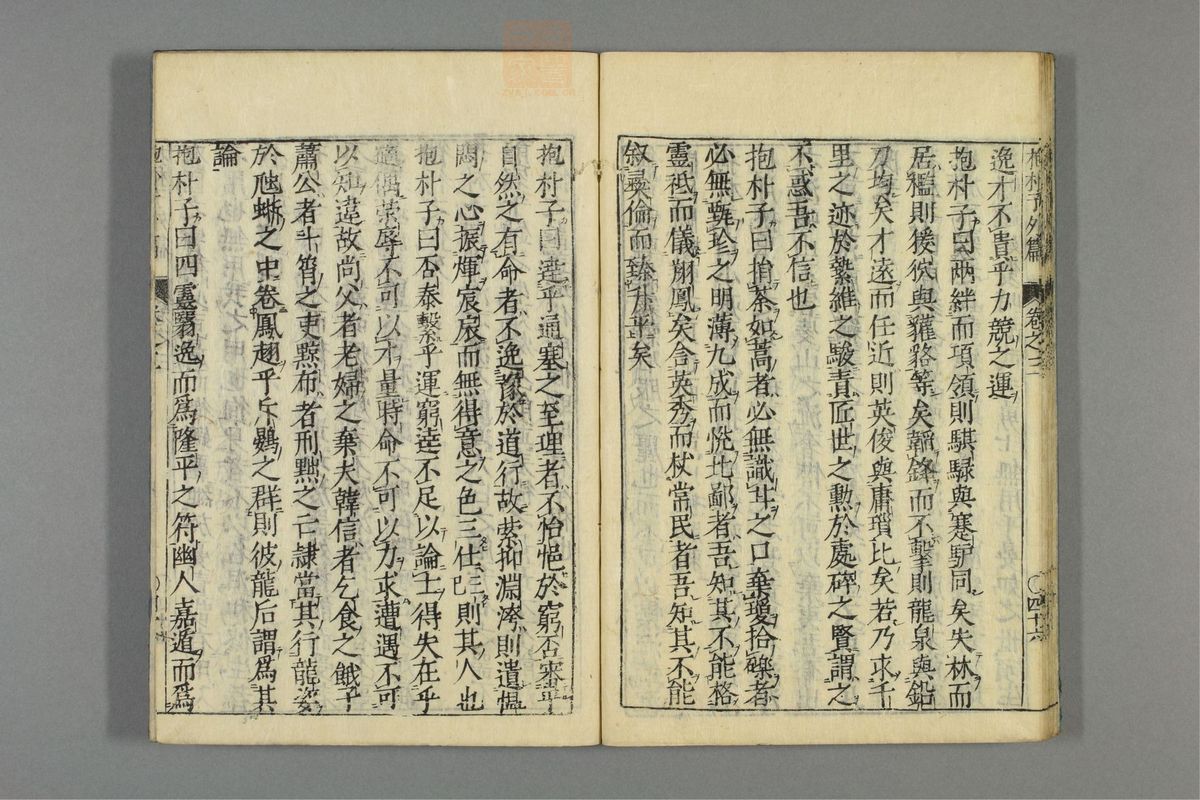 抱朴子外篇 卷之三 〇四十六
逸才不貴乎力競之運
抱朴子曰兩絆而項領則騏騄與蹇驢同矣失林而
居檻則猨狖與貛貉等矣韜鋒而不擊則龍泉與鉛
刀均矣才遠而任近則英俊與庸瑣比矣若乃求千
里之迹於縶維之駿責匠世之勲於處碎之賢謂之
不惑吾不信也
抱朴子曰捐荼如蒿者必無識甘之口棄瓊拾礫者
必無甄珍之明薄九成而悅北鄙者吾知其不能格
靈祇而儀翔鳳矣舍英秀而杖常民者吾知其不能
叙彛倫而臻升平矣
抱朴子曰達乎通塞之至理者不怡悒於窮否審乎
自然之有命者不逸豫於道行故紫抑淵洿則遺慍
悶之心振煇宸扆而無得意之色三仕三已則其人也
抱朴子曰否泰繫乎運窮達不足以論士得失在乎
適偶榮辱不可以才量時命不可以力求遭遇不可
以知違故尚父者老婦之棄夫韓信者乞食之餓子
蕭公者斗筲之吏黥布者刑黥之亡隷當其行龍姿
於虺蜥之中卷鳳翅乎斥鷃之群則彼龍后謂爲其
論
抱朴子曰四靈翳逸而爲隆平之符幽人嘉遁而爲